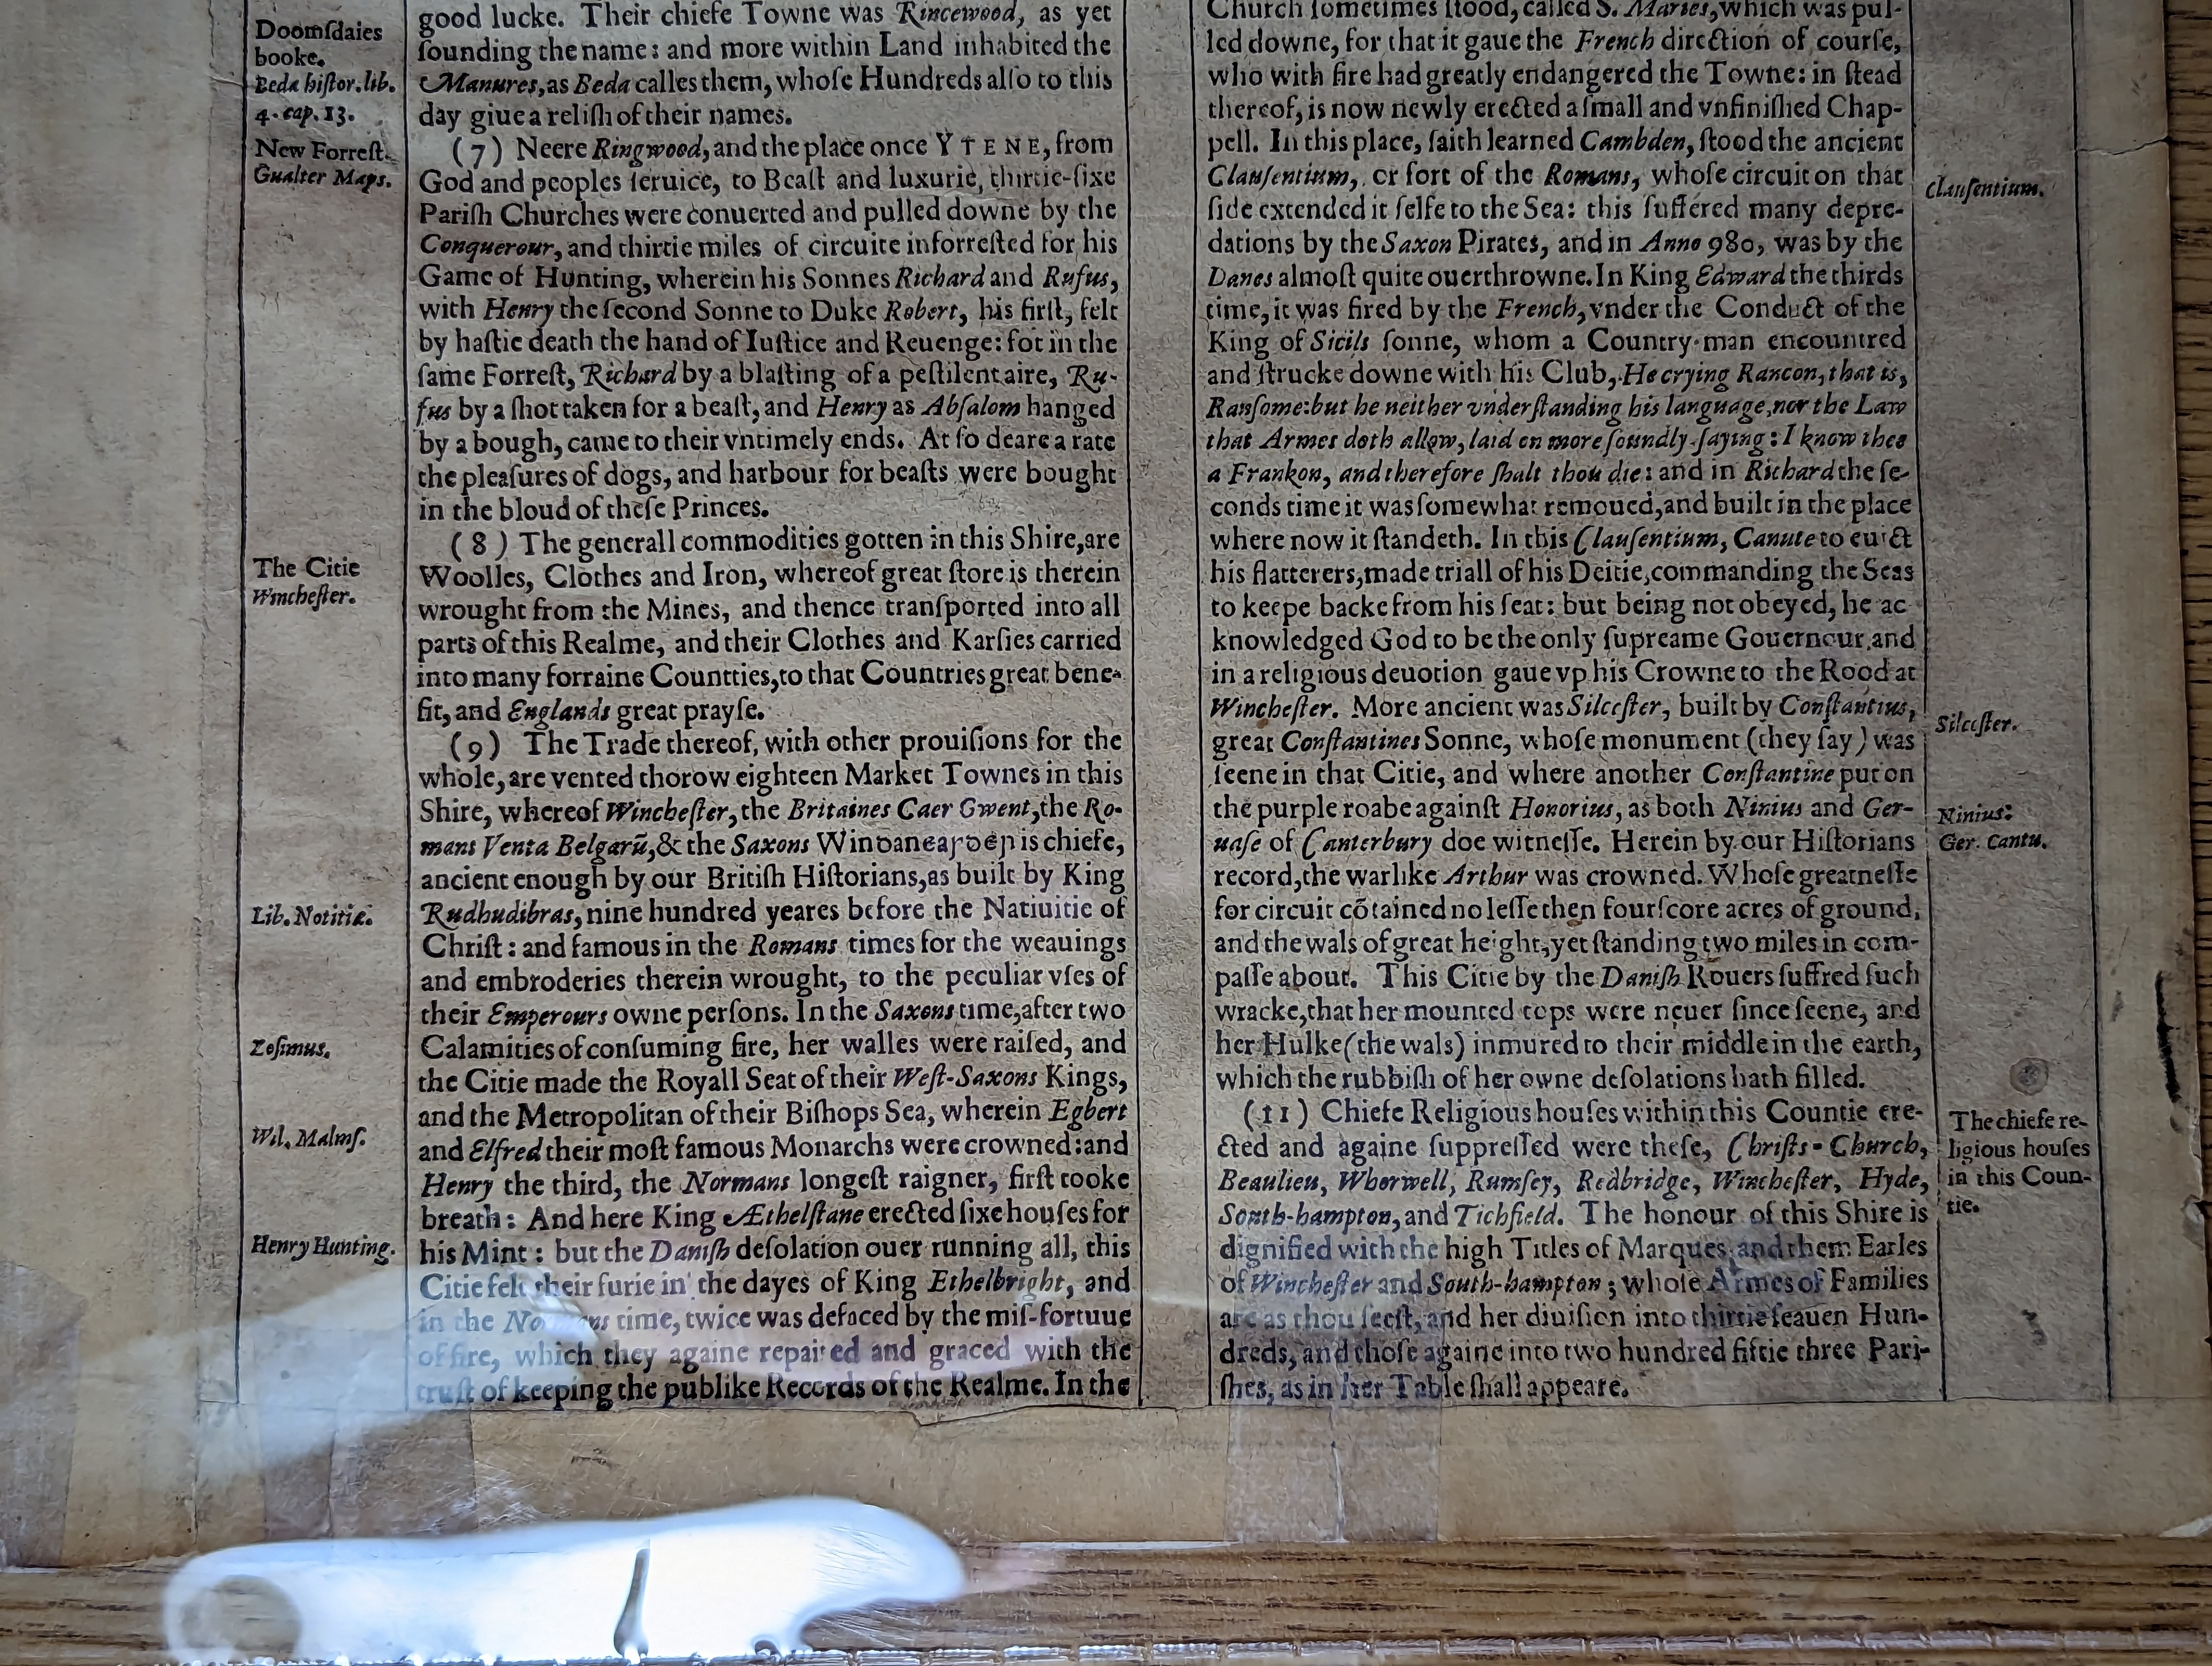 Doomſdaies
booke.
Beda hiſtor. lib.
4. cap. 13.
New Forreſt.
Gualter Maps.
The Citie
Wincheſter.
Lib. Notitiæ.
Zoſimus.
Wil. Malmſ.
Henry Hunting.
good lucke. Their chiefe Towne was Rincewood, as yet
ſounding the name: and more within Land inhabited the
Manures, as Beda calles them, whoſe Hundreds alſo to this
day giue a reliſh of their names.
(7) Neere Ringwood, and the place once YTENE, from
God and peoples ſeruice, to Beaſt and luxurie, thirtie-ſixe
Pariſh Churches were conuerted and pulled downe by the
Conquerour, and thirtie miles of circuite inforreſted for his
Game of Hunting, wherein his Sonnes Richard and Rufus,
with Henry the ſecond Sonne to Duke Robert, his firſt, felt
by haſtie death the hand of Iuſtice and Reuenge: for in the
ſame Forreſt, Richard by a blaſting of a peſtilent aire, Ru-
fus by a ſhot taken for a beaſt, and Henry as Abſalom hanged
by a bough, came to their vntimely ends. At ſo deare a rate
the pleaſures of dogs, and harbour for beaſts were bought
in the bloud of theſe Princes.
(8) The generall commodities gotten in this Shire, are
Woolles, Clothes and Iron, whereof great ſtore is therein
wrought from the Mines, and thence tranſported into all
parts of this Realme, and their Clothes and Karſies carried
into many forraine Countties, to that Countries great bene-
fit, and Englands great prayſe.
(9) The Trade thereof, with other prouiſions for the
whole, are vented thorow eighteen Market Townes in this
Shire, whereof Wincheſter, the Britaines Caer Gwent, the Ro-
mans Venta Belgarū, & the Saxons Winꝺanceaꞃꝺen is chiefe,
ancient enough by our Britiſh Hiſtorians, as built by King
Rudhudibras, nine hundred yeares before the Natiuitie of
Chriſt: and famous in the Romans times for the weauings
and embroderies therein wrought, to the peculiar vſes of
their Emperours owne perſons. In the Saxons time, after two
Calamities of conſuming fire, her walles were raiſed, and
the Citie made the Royall Seat of their Weſt-Saxons Kings,
and the Metropolitan of their Biſhops Sea, wherein Egbert
and Elfred their moſt famous Monarchs were crowned: and
Henry the third, the Normans longeſt raigner, firſt tooke
breath: And here King Æthelſtane erected ſixe houſes for
his Mint: but the Daniſh deſolation ouer running all, this
Citie felt their furie in the dayes of King Ethelbright, and
in the Normans time, twice was defaced by the miſ-fortuue
of fire, which they againe repaired and graced with the
truſt of keeping the publike Records of the Realme. In the
Church ſometimes ſtood, called S. Maries, which was pul-
led downe, for that it gaue the French direction of courſe,
who with fire had greatly endangered the Towne: in ſtead
thereof, is now newly erected a ſmall and vnfiniſhed Chap-
pell. In this place, ſaith learned Cambden, ſtood the ancient
Clauſentium, or fort of the Romans, whoſe circuit on that
ſide extended it ſelfe to the Sea: this ſuffered many depre-
dations by the Saxon Pirates, and in Anno 980, was by the
Danes almoſt quite ouerthrowne. In King Edward the thirds
time, it was fired by the French, vnder the Conduct of the
King of Sicils ſonne, whom a Country-man encountred
and ſtrucke downe with his Club, He crying Rancon, that is,
Ranſome: but he neither vnderſtanding his language, nor the Law
that Armes doth allow, laid on more ſoundly, ſaying: I know thee
a Frankon, and therefore ſhalt thou die: and in Richard the ſe-
conds time it was ſomewhat remoued, and built in the place
where now it ſtandeth. In this Clauſentium, Canute to euict
his flatterers, made triall of his Deitie, commanding the Seas
to keepe backe from his ſeat: but being not obeyed, he ac
knowledged God to be the only ſupreame Gouernour, and
in a religious deuotion gaue vp his Crowne to the Rood at
Wincheſter. More ancient was Silceſter, built by Conſtantius,
great Conſtantines Sonne, whoſe monument (they ſay) was
ſeene in that Citie, and where another Conſtantine put on
the purple roabe againſt Honorius, as both Ninius and Ger-
uaſe of Canterbury doe witneſſe. Herein by our Hiſtorians
record, the warlike Arthur was crowned. Whoſe greatneſſe
for circuit cōtained no leſſe then fourſcore acres of ground,
and the wals of great height, yet ſtanding two miles in com-
paſſe about. This Citie by the Daniſh Rouers ſuffred ſuch
wracke, that her mounted tops were neuer ſince ſeene, and
her Hulke (the wals) inmured to their middle in the earth,
which the rubbiſh of her owne deſolations hath filled.
(11) Chiefe Religious houſes within this Countie ere-
cted and againe ſuppreſſed were theſe, Chriſts-Church,
Beaulieu, Whorwell, Rumſey, Redbridge, Wincheſter, Hyde,
South-hampton, and Tichfield. The honour of this Shire is
dignified with the high Titles of Marques, and them Earles
of Wincheſter and South-hampton; whoſe Armes of Families
are as thou ſeeſt, and her diuiſion into thirtie ſeauen Hun-
dreds, and thoſe againe into two hundred fiftie three Pari-
ſhes, as in her Table ſhall appeare.
Clauſentium.
Silceſter.
Ninius:
Ger. Cantu.
The chiefe re-
ligious houſes
in this Coun-
tie.